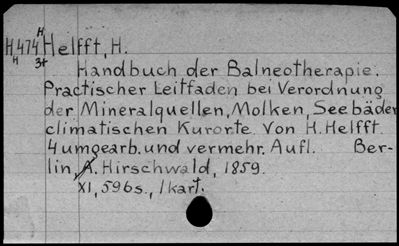 H474 H Helfft, H.
H 3t
Handbuch der Balneotherapie.
Practischer Leitfaden bei Verordnung
der Mineralquellen, Molken, Seebäder
climatischen Kurorte von H. Helfft.
4 umgearb. und vermehr. Aufl. Ber-
lin, A. Hirschwald, 1859.
XI, 596s., 1 kart.